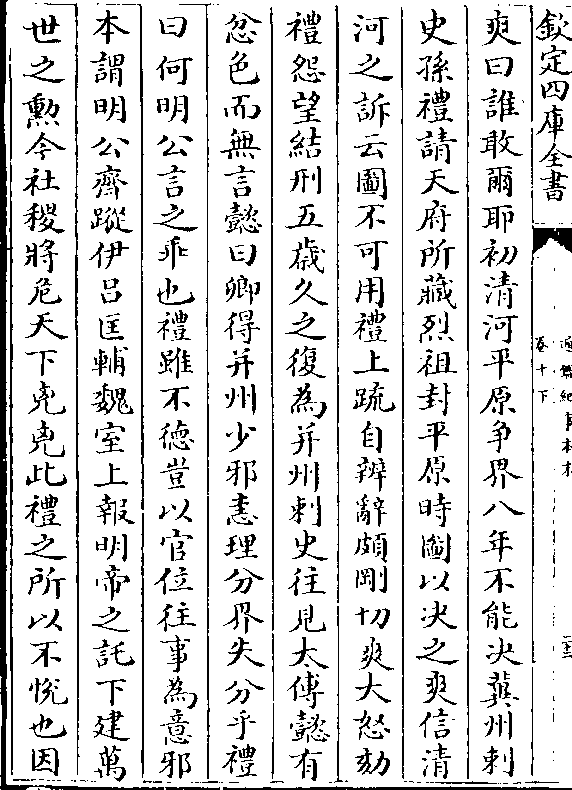 欽定四庫全書
卷十下
爽曰誰敢爾耶初清河平原争界八年不能决冀州刺
史孫禮請天府所藏烈祖封平原時圖以决之爽信清
河之訴云圖不可用禮上疏自辨辭頗剛切爽大怒劾
禮怨望結刑五歳久之復為并州刺史往見太傅懿有
忿色而無言懿曰卿得并州少邪恚理分界失分乎禮
曰何明公言之乖也禮雖不德豈以官位往事為意邪
本謂明公齊蹤伊吕匡輔魏室上報明帝之託下建萬
世之勲今社稷將危天下兇兇此禮之所以不悅也因